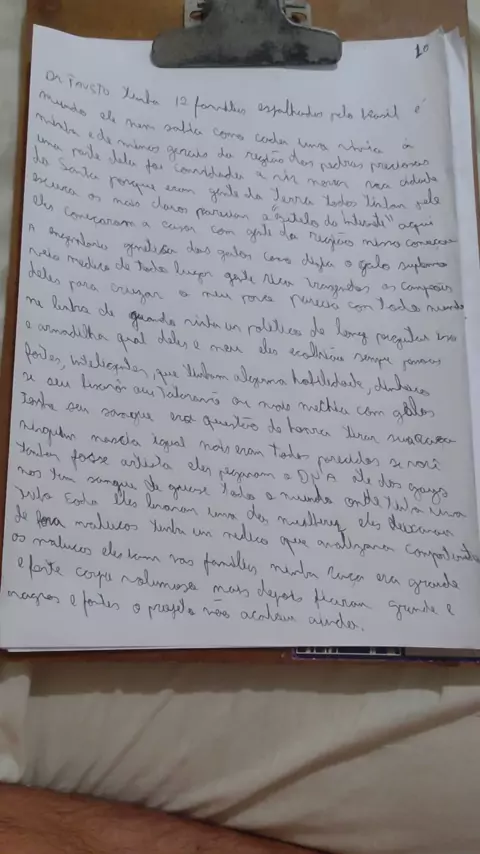 10
Dr FAUSTO tinha 12 famílias espalhadas pelo Brasil é
mundo ele nem sabia como cada uma vivia a
minha e de minas gerais da região das pedras preciosas
uma parte dela foi convidada a vir morar na cidade
da Santa porque eram gente da terra todos tinham pele
escura os mais claros pareciam a "Sutelo do interete" aqui
eles começaram a casar com gente da região nisso começou
a engenharia genética dos galos como dizia o galo supremo
veio medico de todo lugar gente Rica trazendo os campeões
deles para cruzar o meu povo parecia com todo mundo
me lembro de quando vinha um politico de longe
e armadilha qual deles e meu eles escolhiam sempre
fortes, inteligentes, que tinham alguma habilidade, dinheiro
se seu bisavô ou mais mechia com galos
tenha seu sangue era questão de honra tirar sua
ninguem nascia igual mais eram todos parecidos se você
tambem fosse artista eles pegavam o DNA até dos gays
nos tem sangue de quase todo o mundo onde tinha uma
vida eles levavam uma das mulheres eles deixavam
de fora malucos tinha um medico que analizava
os malucos eles nas famílias minha raça era grande
e forte corpo volumoso mais depois ficaram grande e
magros e fortes o projeto não acabou ainda.